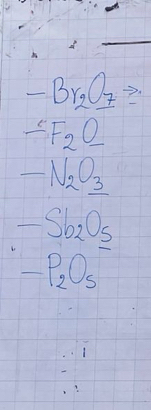 - Br₂O₇ →
- F₂O
- N₂O₃
- Sb₂O₅
- P₂O₅